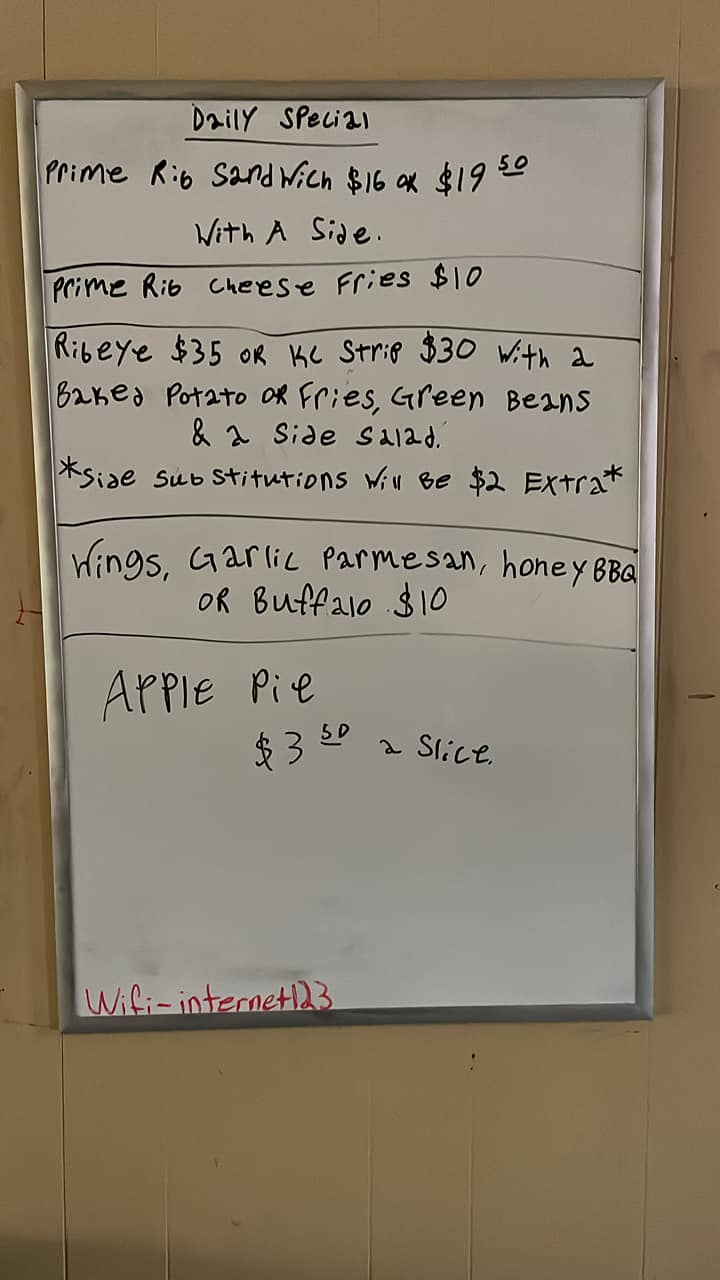 Daily Special
Prime Rib Sandwich $16 or $19 50
With A Side.
Prime Rib Cheese Fries $10
Ribeye $35 OR KC Strip $30 With a
Baked Potato OR Fries, Green Beans
& a Side Salad.
*Side Substitutions Will Be $2 Extra*
Wings, Garlic Parmesan, honey BBQ
OR Buffalo $10
Apple Pie
$3 50 a Slice.
Wifi-internet123